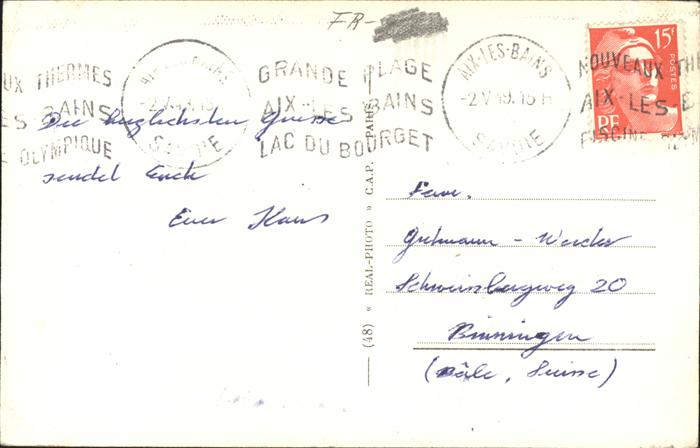 FR-
UX THERMES
ES BAINS
E OLYMPIQUE
SAVOIE
GRANDE PLAGE
AIX-LES-BAINS
LAC DU BOURGET
AIX-LES-BAINS
-2 V 49. 15 H
SAVOIE
15F
POSTES
RF
NOUVEAUX TH
AIX-LES-B
PISCINE
Die herzlichsten Grüsse
sendet Euch
Euer Hans
(48) « REAL-PHOTO » C.A.P. PARIS
Fam.
Gutmann - Werder
Schweissbergweg 20
Binningen
(Bâle, Suisse)